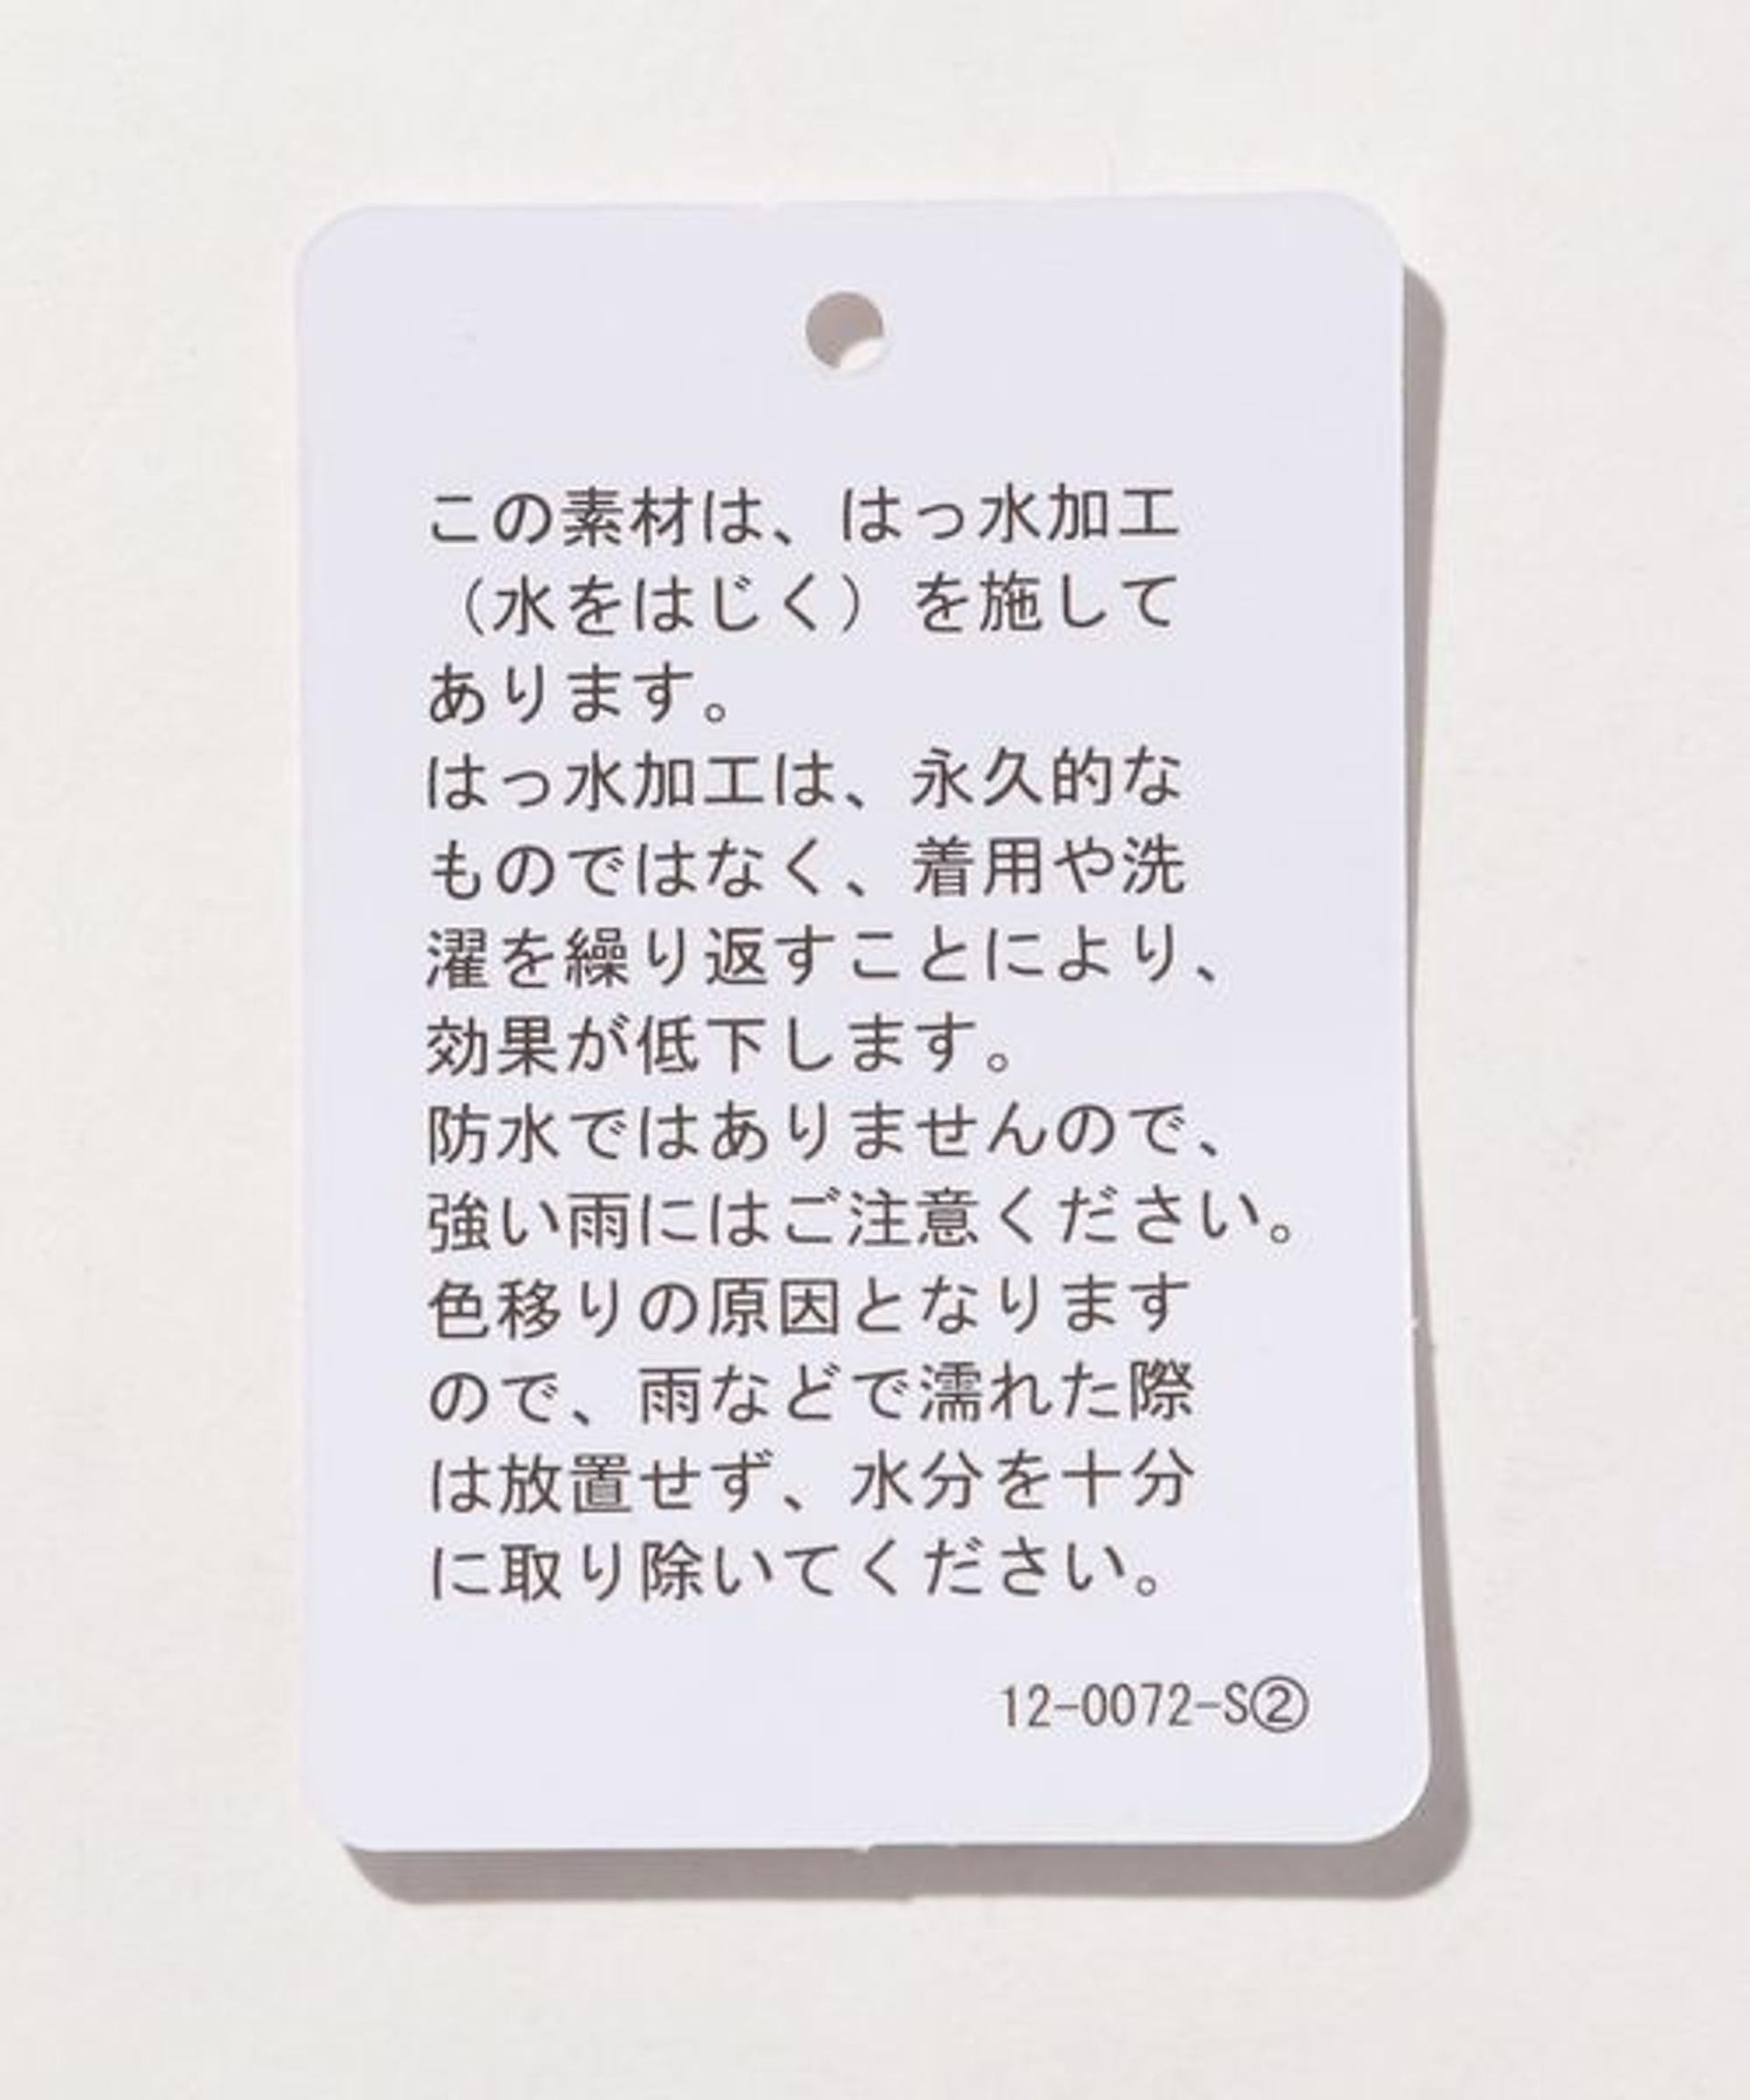 この素材は、はっ水加工
（水をはじく）を施して
あります。
はっ水加工は、永久的な
ものではなく、着用や洗
濯を繰り返すことにより、
効果が低下します。
防水ではありませんので、
強い雨にはご注意ください。
色移りの原因となります
ので、雨などで濡れた際
は放置せず、水分を十分
に取り除いてください。
12-0072-S②